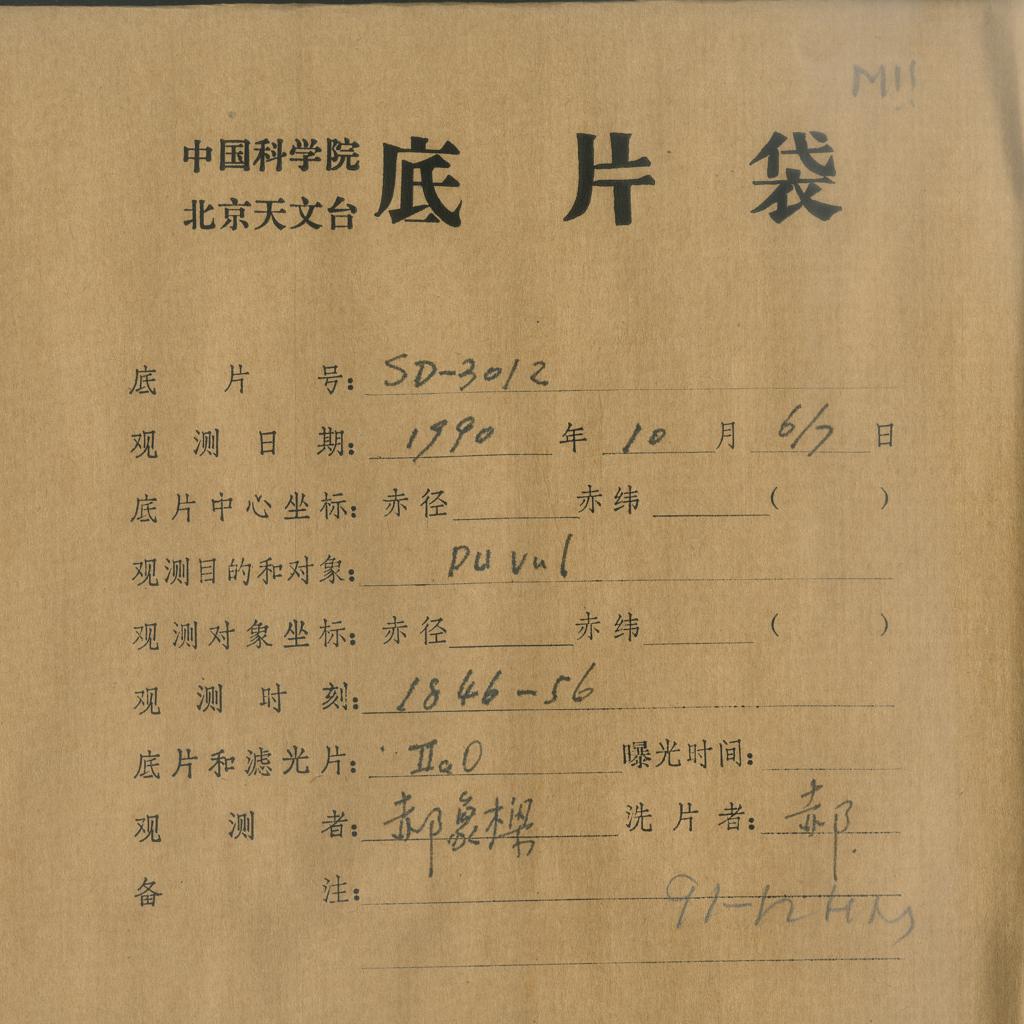 M11
中国科学院
北京天文台 底片袋
底片号: SD-3012
观测日期: 1990 年 10 月 6/7 日
底片中心坐标: 赤径 赤纬 ( )
观测目的和对象: PU Vul
观测对象坐标: 赤径 赤纬 ( )
观测时刻: 1846-56
底片和滤光片: IIaO 曝光时间:
观测者: 郝象樑 洗片者: 郝
备注:
91-12